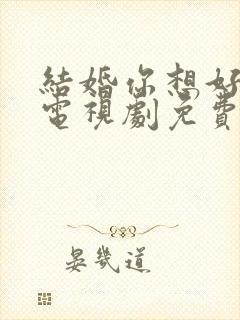 結婚你想好
電視劇免費
晏幾道